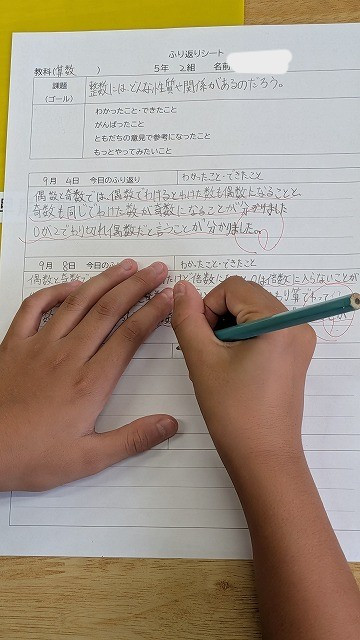 ふり返りシート
教科(算数 ) 5年 2組 名前
課題
(ゴール)
整数にはどんな性質や関係があるのだろう。
わかったこと・できたこと
がんばったこと
ともだちの意見で参考になったこと
もっとやってみたいこと
9月 4日 今日のふり返り わかったこと・できたこと
偶数と奇数では、偶数でわけるとわけた数も偶数となることと、
奇数も同じでわけた数が奇数になることが分かりました
0が2でわり切れ偶数だと言うことが分かりました。
9月 8日 今日のふり返り わかったこと・できたこと
偶数と奇数で 倍数に 0は倍数に入らないことが